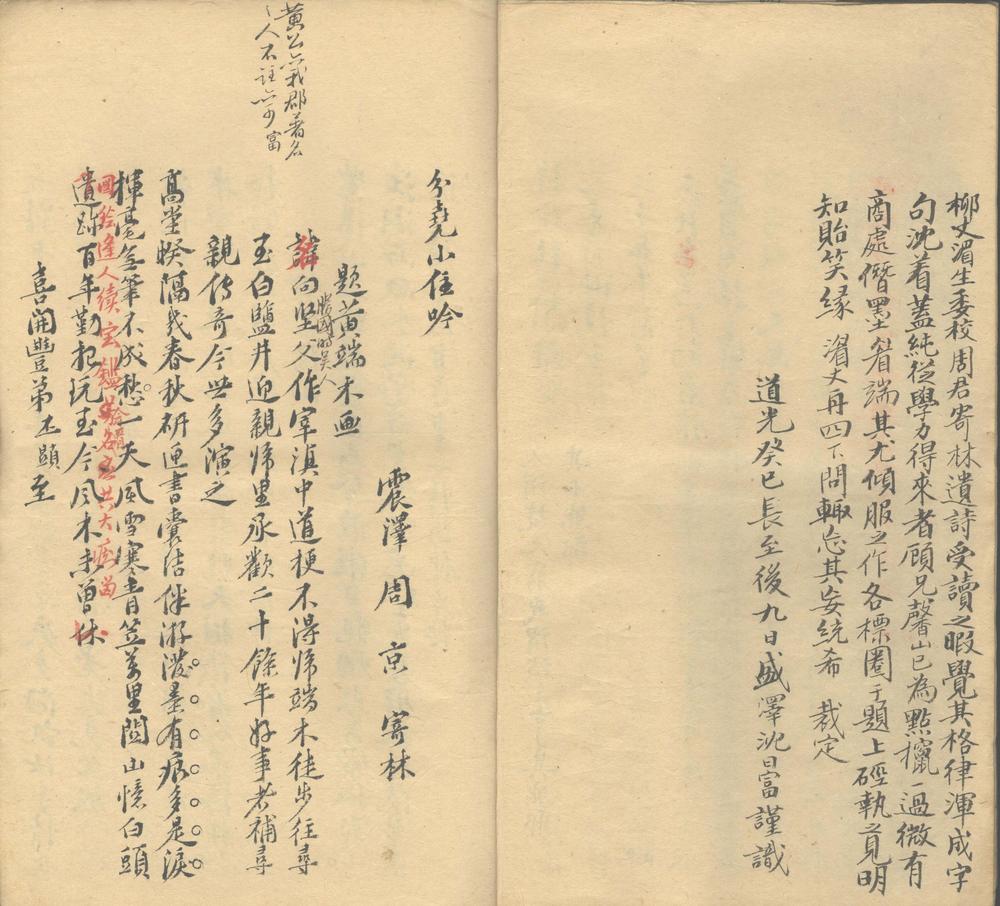 柳丈湄生委校周君寄林遺詩受讀之暇覺其格律渾成字
句沈着蓋純從學力得來者顧兄馨山已為點攛一過微有
商處僭墨者端其尤傾服之作各標圈于題上硜執覔明
知貽笑緣湄丈再四下問輒忘其妄統希 裁定
道光癸巳長至後九日盛澤沈曰富謹識
黄公我郡著名
人不註亦可 富
分堯小住吟
震澤 周 京 寄林
題黄端木画
諱向坚父作宰滇中道梗不得歸端木徒步往尋
勝國時吴人
至白鹽井迎親歸里承歡二十餘年好事者補尋
親傳奇今世多演之
髙堂暌隔幾春秋研匣書囊沽伴游潑墨有痕多是淚
揮毫無筆不成愁一天風雪寒青笠萬里関山憶白頭
遺跡百年勤把玩至今風木未曽休
喜開豐第五顯至